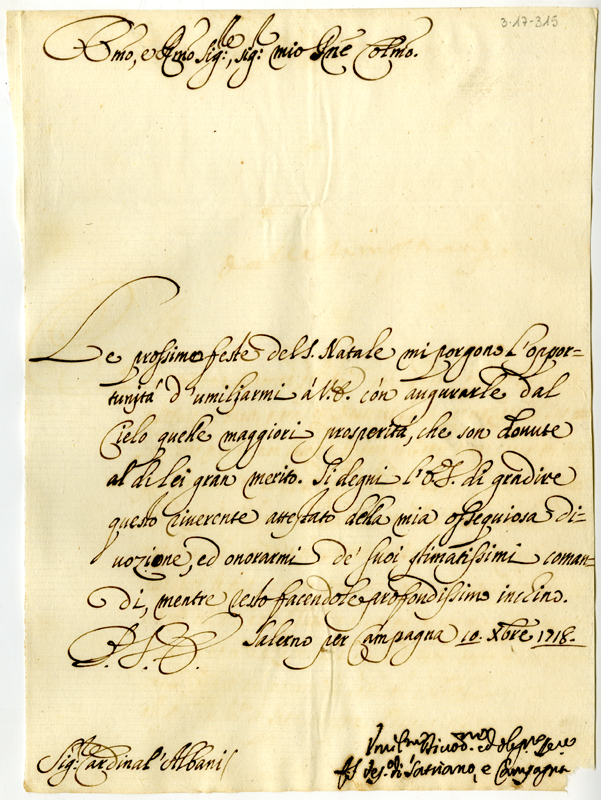 3-17-315
Emo, e Rmo Sig:re, Sig:r mio Pne Colmo.
Le prossime feste del S. Natale mi porgono l'oppor=
tunità d'umiliarmi à V.E. còn augurarle dal
Cielo quelle maggiori prosperità, che son dovute
al di lei gran merito. Si degni l'E.S. di gradire
questo riverente attestato della mia ossequiosa di=
vozione, ed onorarmi de' suoi stimatissimi coman=
di, mentre resto facendole profondissimo inchino.
D.V.E. Salerno per Campagna 10. Xbre 1718.
Sig:r Cardinal' Albani
Umil.mo Divod.mo ed
Ves.o di Satriano, e Campagna